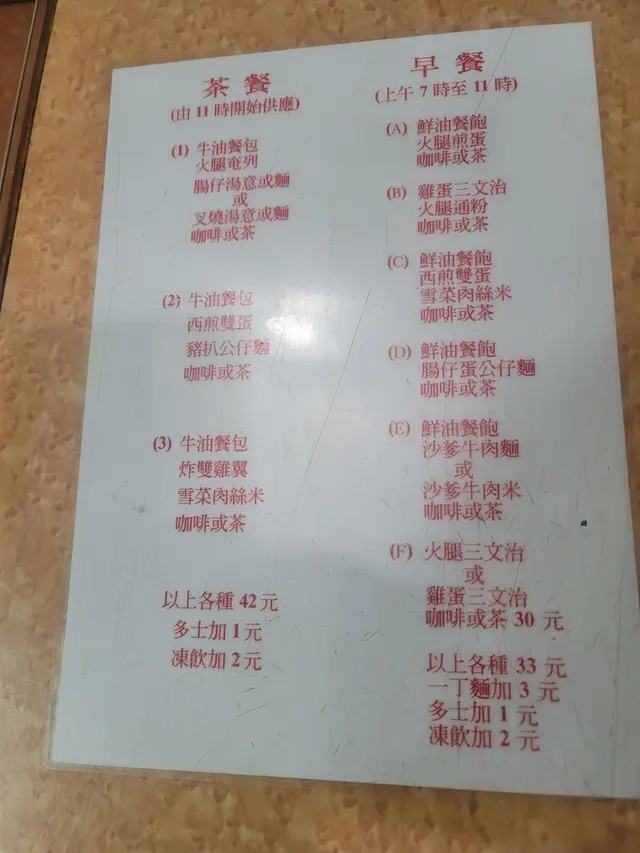 茶餐
(由 11 時開始供應)
(1) 牛油餐包
火腿奄列
腸仔湯意或麵
或
叉燒湯意或麵
咖啡或茶
(2) 牛油餐包
西煎雙蛋
豬扒公仔麵
咖啡或茶
(3) 牛油餐包
炸雙雞翼
雪菜肉絲米
咖啡或茶
以上各種 42 元
多士加 1 元
凍飲加 2 元
早餐
(上午 7 時至 11 時)
(A) 鮮油餐飽
火腿煎蛋
咖啡或茶
(B) 雞蛋三文治
火腿通粉
咖啡或茶
(C) 鮮油餐飽
西煎雙蛋
雪菜肉絲米
咖啡或茶
(D) 鮮油餐飽
腸仔蛋公仔麵
咖啡或茶
(E) 鮮油餐飽
沙爹牛肉麵
或
沙爹牛肉米
咖啡或茶
(F) 火腿三文治
或
雞蛋三文治
咖啡或茶 30 元
以上各種 33 元
一丁麵加 3 元
多士加 1 元
凍飲加 2 元